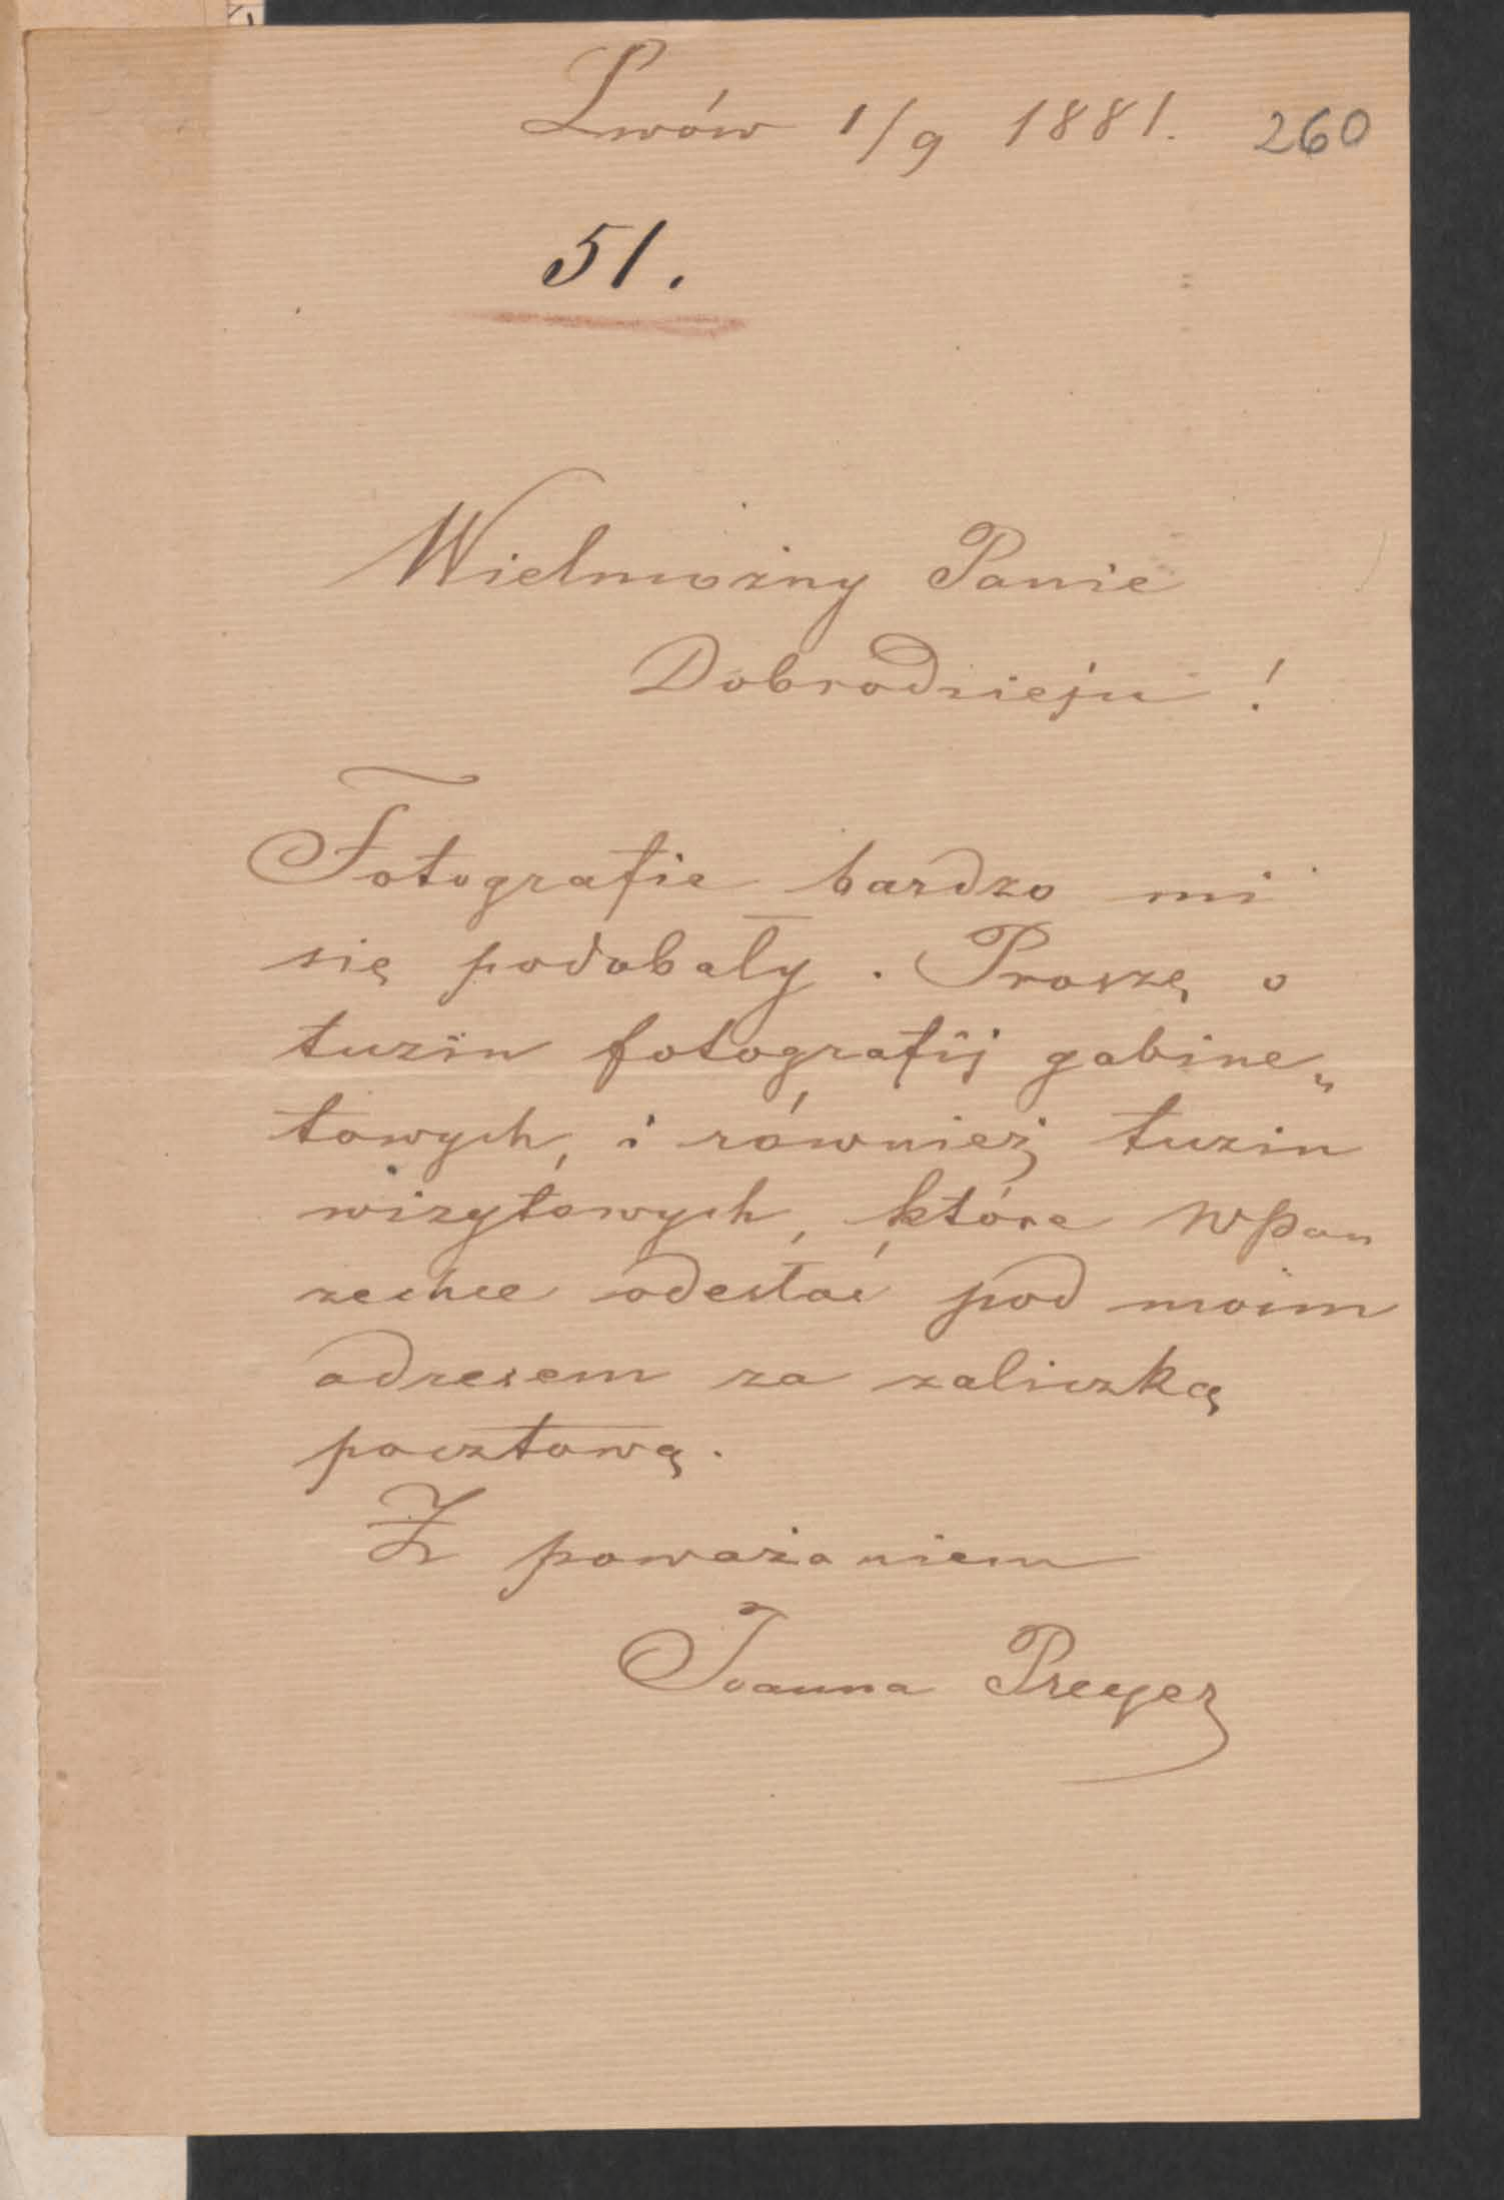 Lwów 1/9 1881. 260
51.
Wielmożny Panie
Dobrodzieju !
Fotografie bardzo mi
się podobały. Proszę o
tuzin fotografij gabine„
towych, i również tuzin
wizytowych, które WPan
zechce odesłać pod moim
adresem za zaliczką
pocztową.
Z poważaniem
Joanna Preyer